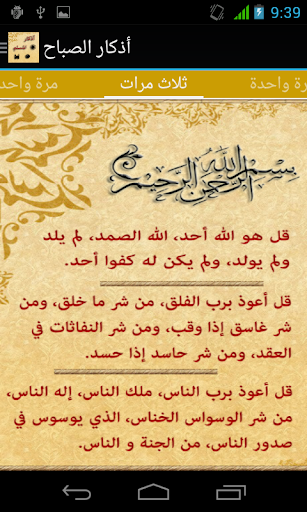 9:39
أذكار الصباح
رة واحدة
ثلاث مرات
مرة واحد
بسم الله الرحمن الرحيم
قل هو الله أحد، الله الصمد، لم يلد
ولم يولد، ولم يكن له كفوا أحد.
قل أعوذ برب الفلق، من شر ما خلق، ومن
شر غاسق إذا وقب، ومن شر النفاثات في
العقد، ومن شر حاسد إذا حسد.
قل أعوذ برب الناس، ملك الناس، إله الناس،
من شر الوسواس الخناس، الذي يوسوس في
صدور الناس، من الجنة و الناس.